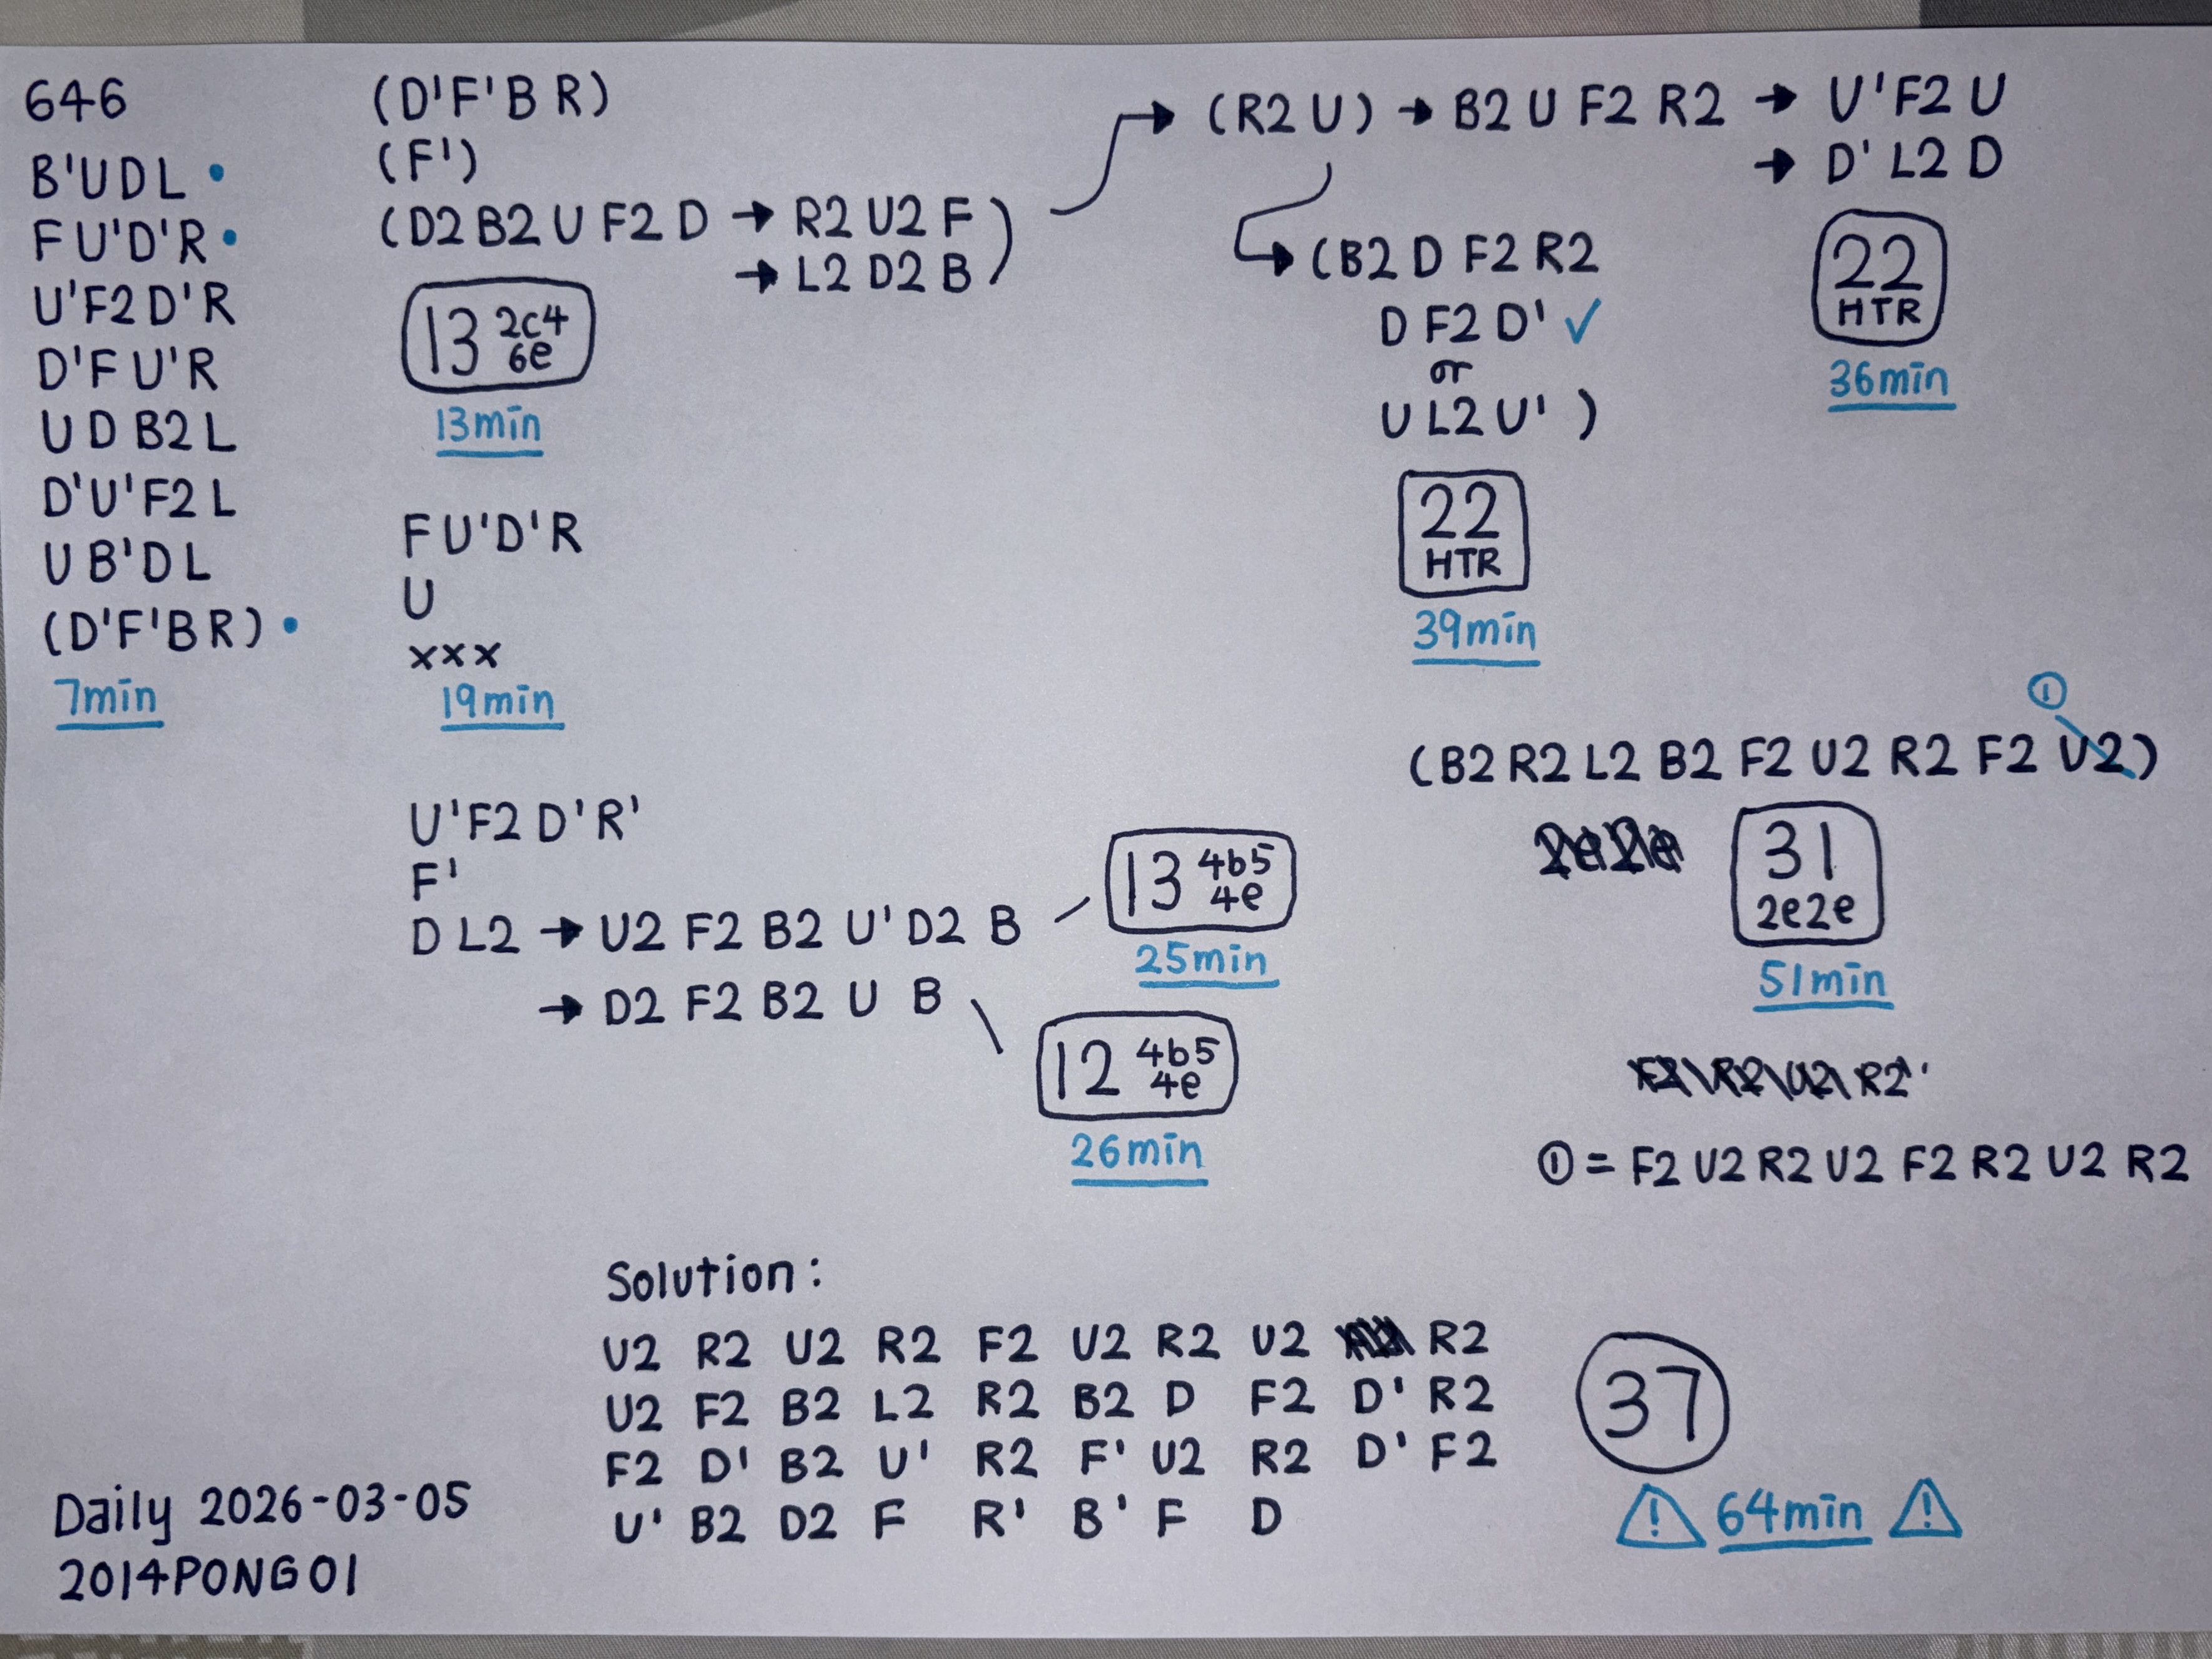 646
B'UDL •
FU'D'R •
U'F2D'R
D'FU'R
UDB2L
D'U'F2L
UB'DL
(D'F'BR) •
7min
(D'F'BR)
(F')
(D2 B2 U F2 D → R2 U2 F
→ L2 D2 B)
13 2c4 6e
13min
FU'D'R
U
xxx
19min
U'F2D'R'
F'
D L2 → U2 F2 B2 U' D2 B
→ D2 F2 B2 U B
13 4b5 4e
25min
12 4b5 4e
26min
→ (R2 U) → B2 U F2 R2 → U'F2 U
→ D' L2 D
22
HTR
36min
(B2 D F2 R2
D F2 D' ✓
or
U L2 U' )
22
HTR
39min
①
(B2 R2 L2 B2 F2 U2 R2 F2 U2)
2e2e
31
2e2e
51min
F2 R2 U2 R2'
① = F2 U2 R2 U2 F2 R2 U2 R2
Solution:
U2 R2 U2 R2 F2 U2 R2 U2 R2
U2 F2 B2 L2 R2 B2 D F2 D' R2
F2 D' B2 U' R2 F' U2 R2 D' F2
U' B2 D2 F R' B' F D
37
⚠ 64min ⚠
Daily 2026-03-05
2014PONG01